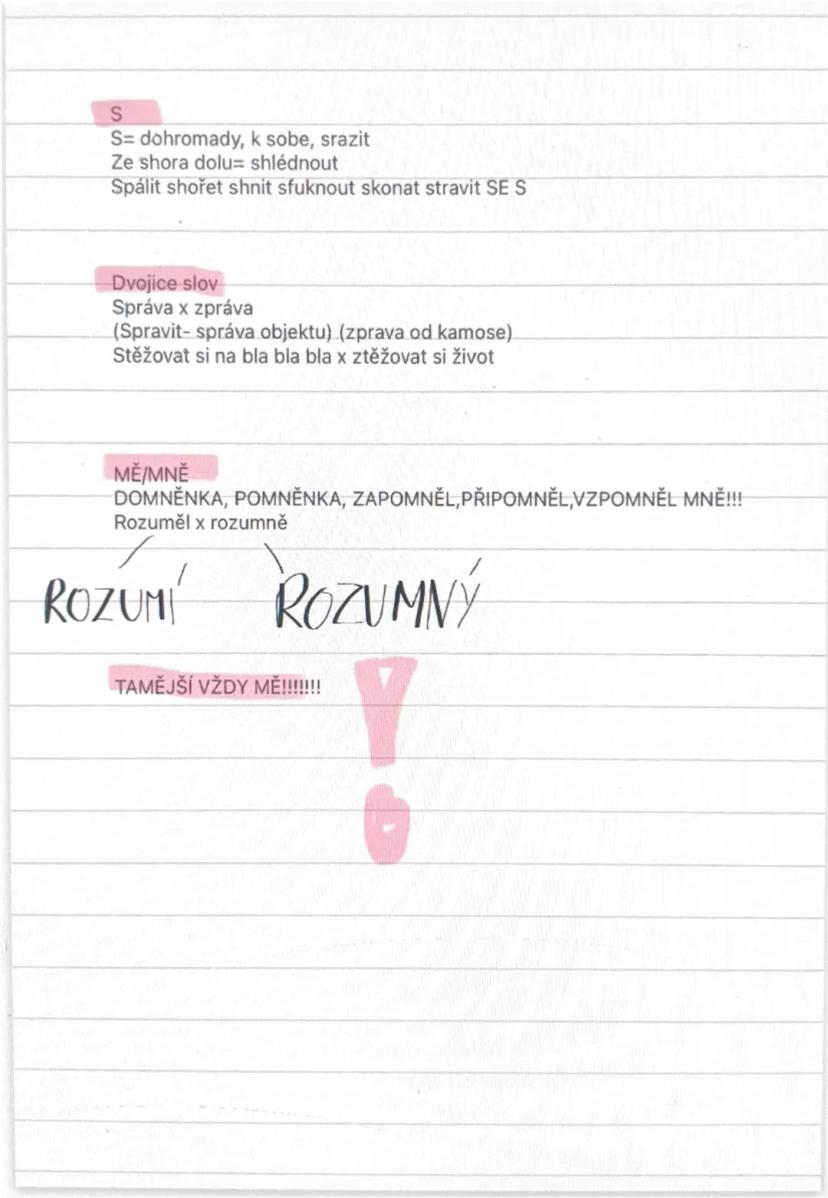 S
S= dohromady, k sobe, srazit
Ze shora dolu= shlédnout
Spálit shořet shnit sfuknout skonat stravit SE S
Dvojice slov
Správa x zpráva
(Spravit- správa objektu) (zprava od kamose)
Stěžovat si na bla bla bla x ztěžovat si život
MĚ/MNĚ
DOMNĚNKA, POMNĚNKA, ZAPOMNĚL,PŘIPOMNĚL,VZPOMNĚL MNĚ!!!
Rozuměl x rozumně
ROZUMÍ ROZUMNÝ
TAMĚJŠÍ VŽDY MĚ!!!!!!!
!